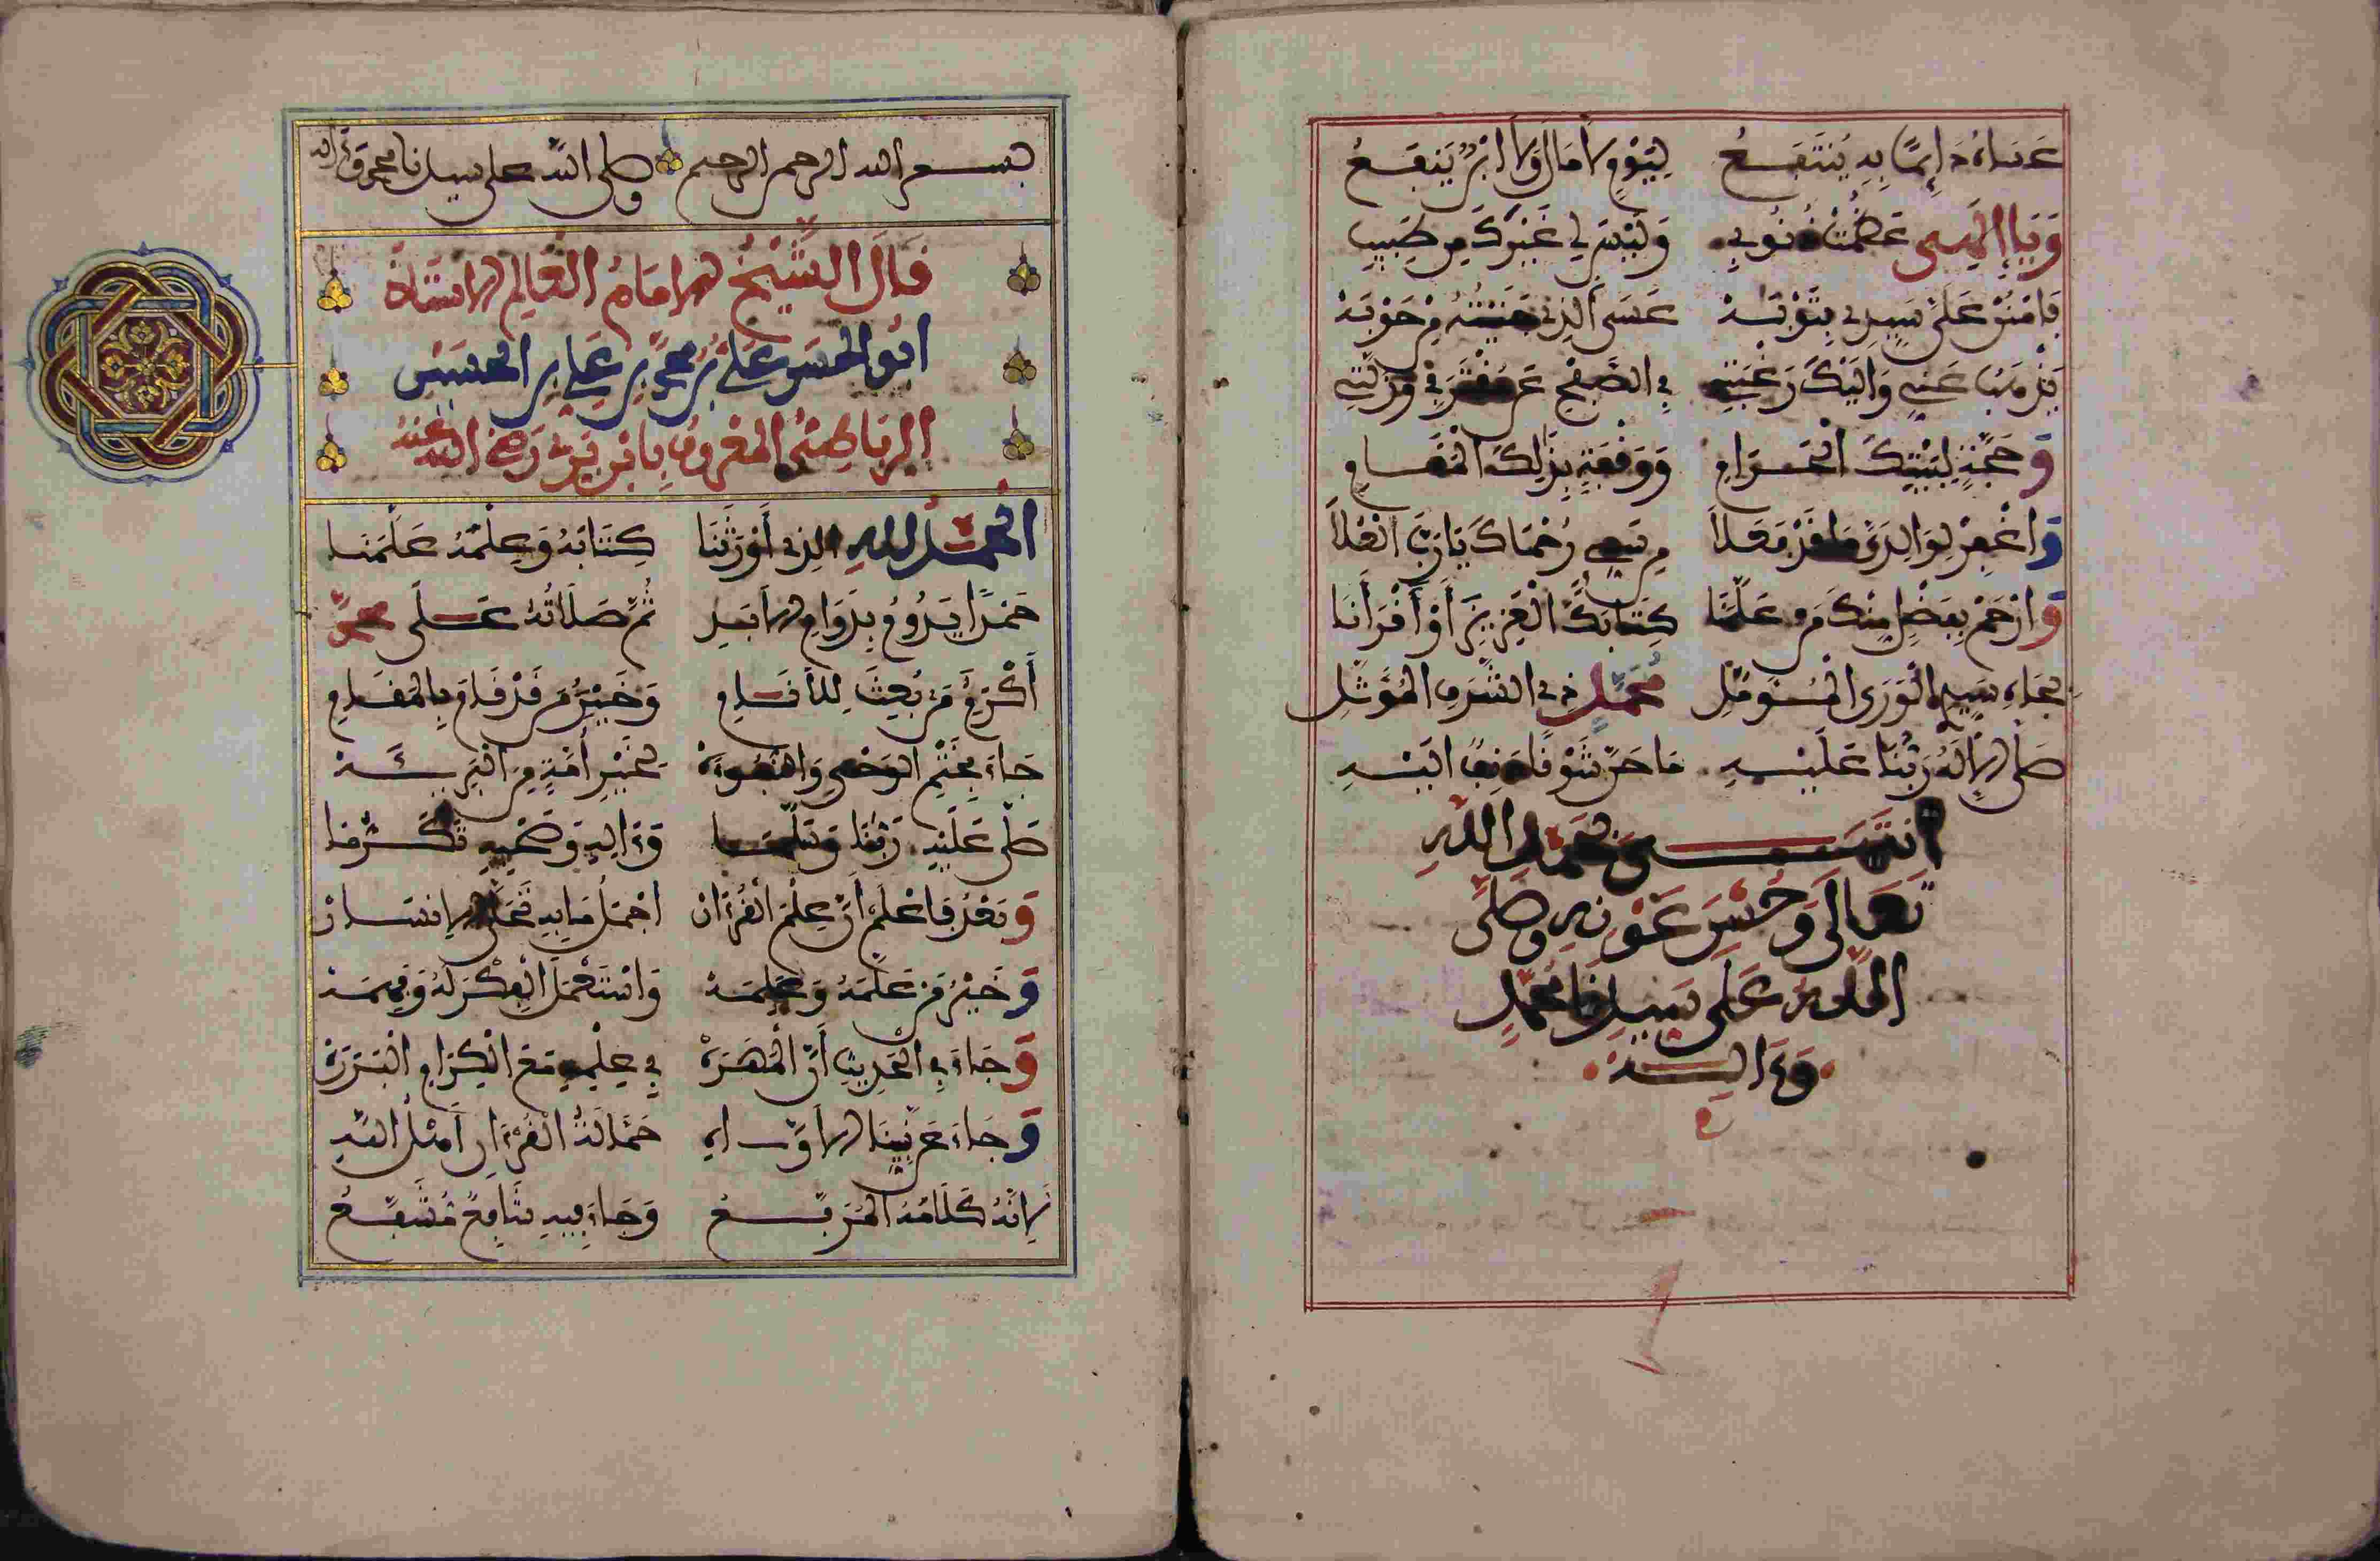 عَسَاهُ دَائِمًا بِهِ يُنْتَفَعُ لِيَوْمِ لَا مَالَ وَلَا ابْنٌ يَنفَعُ
وَيَا إِلَهِي عَظُمَتْ ذُنُوبِي وَلَيْسَ لِي غَيْرُكَ مِن طَبِيبِ
فَامْنُنْ عَلَيَّ سَيِّدِي بِتَوْبَهْ عَسَى الَّذِي جَنَيْتُهُ مِنْ حَوْبَهْ
يَذْهَبُ عَنِّي وَإِلَيْكَ رَغْبَتِي فِي الصَّفْحِ عَن مُقْتَرَفِي وَزَلَّتِي
وَحَجَّةٍ لِبَيْتِكَ الْحَرَامِ وَوَقْفَةٍ بِذَلِكَ الْمَقَامِ
وَاغْفِرْ لِوَالِدَيَّ مَا قَدْ فَعَلَا مِن سَيِّءٍ رُحْمَاكَ يَا رَبَّ الْعُلَا
وَارْحَمْ بِفَضْلٍ مِنْكَ مَن عَلَّمَنَا كِتَابَكَ الْعَزِيزَ أَوْ أَقْرَأَنَا
بِجَاهِ سَيِّدِ الْوَرَى الْمُؤَمَّلِ مُحَمَّدٍ ذِي الشَّرَفِ الْمُؤَثَّلِ
صَلَّى الْإِلَهُ رَبُّنَا عَلَيْهِ مَا حَنَّ شَوْقًا دَنِفٌ إِلَيْهِ
انتَهَى بِحَمْدِ اللَّهِ
تَعَالَى وَحُسْنِ عَوْنِهِ وَصَلَّى
اللَّهُ عَلَى سَيِّدِنَا مُحَمَّدٍ
وَءَالِهِ
بسم الله الرحمن الرحيم وصلى الله على سيدنا محمد وءاله
قَالَ الشَّيْخُ الْإِمَامُ الْعَالِمُ الْأُسْتَاذُ
أَبُو الْحَسَنِ عَلِيُّ بْنُ مُحَمَّدِ بْنِ عَلِيِّ بْنِ الْحُسَيْنِ
الرِّبَاطِيُّ الْمَعْرُوفُ بِابْنِ بَرِّي رَضِيَ اللَّهُ عَنْهُ
الْحَمْدُ لِلَّهِ الَّذِي أَوْرَثَنَا كِتَابَهُ وَعِلْمَهُ عَلَّمَنَا
حَمْدًا يَدُومُ بِدَوَامِ الْأَبَدِ ثُمَّ صَلَاتُهُ عَلَى مُحَمَّدِ
أَكْرَمِ مَن بُعِثَ لِلْأَنَامِ وَخَيْرِ مَن قَدْ قَامَ بِالْمَقَامِ
جَاءَ بِخَتْمِ الْوَحْيِ وَالنُّبُوَّهْ لِخَيْرِ أُمَّةٍ مِنَ الْبَرِيَّهْ
صَلَّى عَلَيْهِ رَبُّنَا وَسَلَّمَا وَءَالِهِ وَصَحْبِهِ تَكَرُّمَا
وَبَعْدُ فَاعْلَمْ أَنَّ عِلْمَ الْقُرْءَانْ أَجْمَلُ مَا بِهِ تَحَلَّى الْإِنْسَانْ
وَخَيْرُ مَن عَلَّمَهُ وَعَلِمَهْ وَاسْتَعْمَلَ الْفِكْرَ لَهُ وَفَهِمَهْ
وَجَاءَ فِي الْحَدِيثِ أَنَّ الْمَهَرَهْ فِي عِلْمِهِ مَعَ الْكِرَامِ الْبَرَرَهْ
وَجَاءَ عَن نَبِيِّنَا الْأَوَّاهِ حَمَلَةُ الْقُرْءَانِ أَهْلُ اللَّهِ
لِأَنَّهُ كَلَامُهُ الْمُرَفَّعُ وَجَاءَ فِيهِ شَافِعٌ مُشَفَّعُ